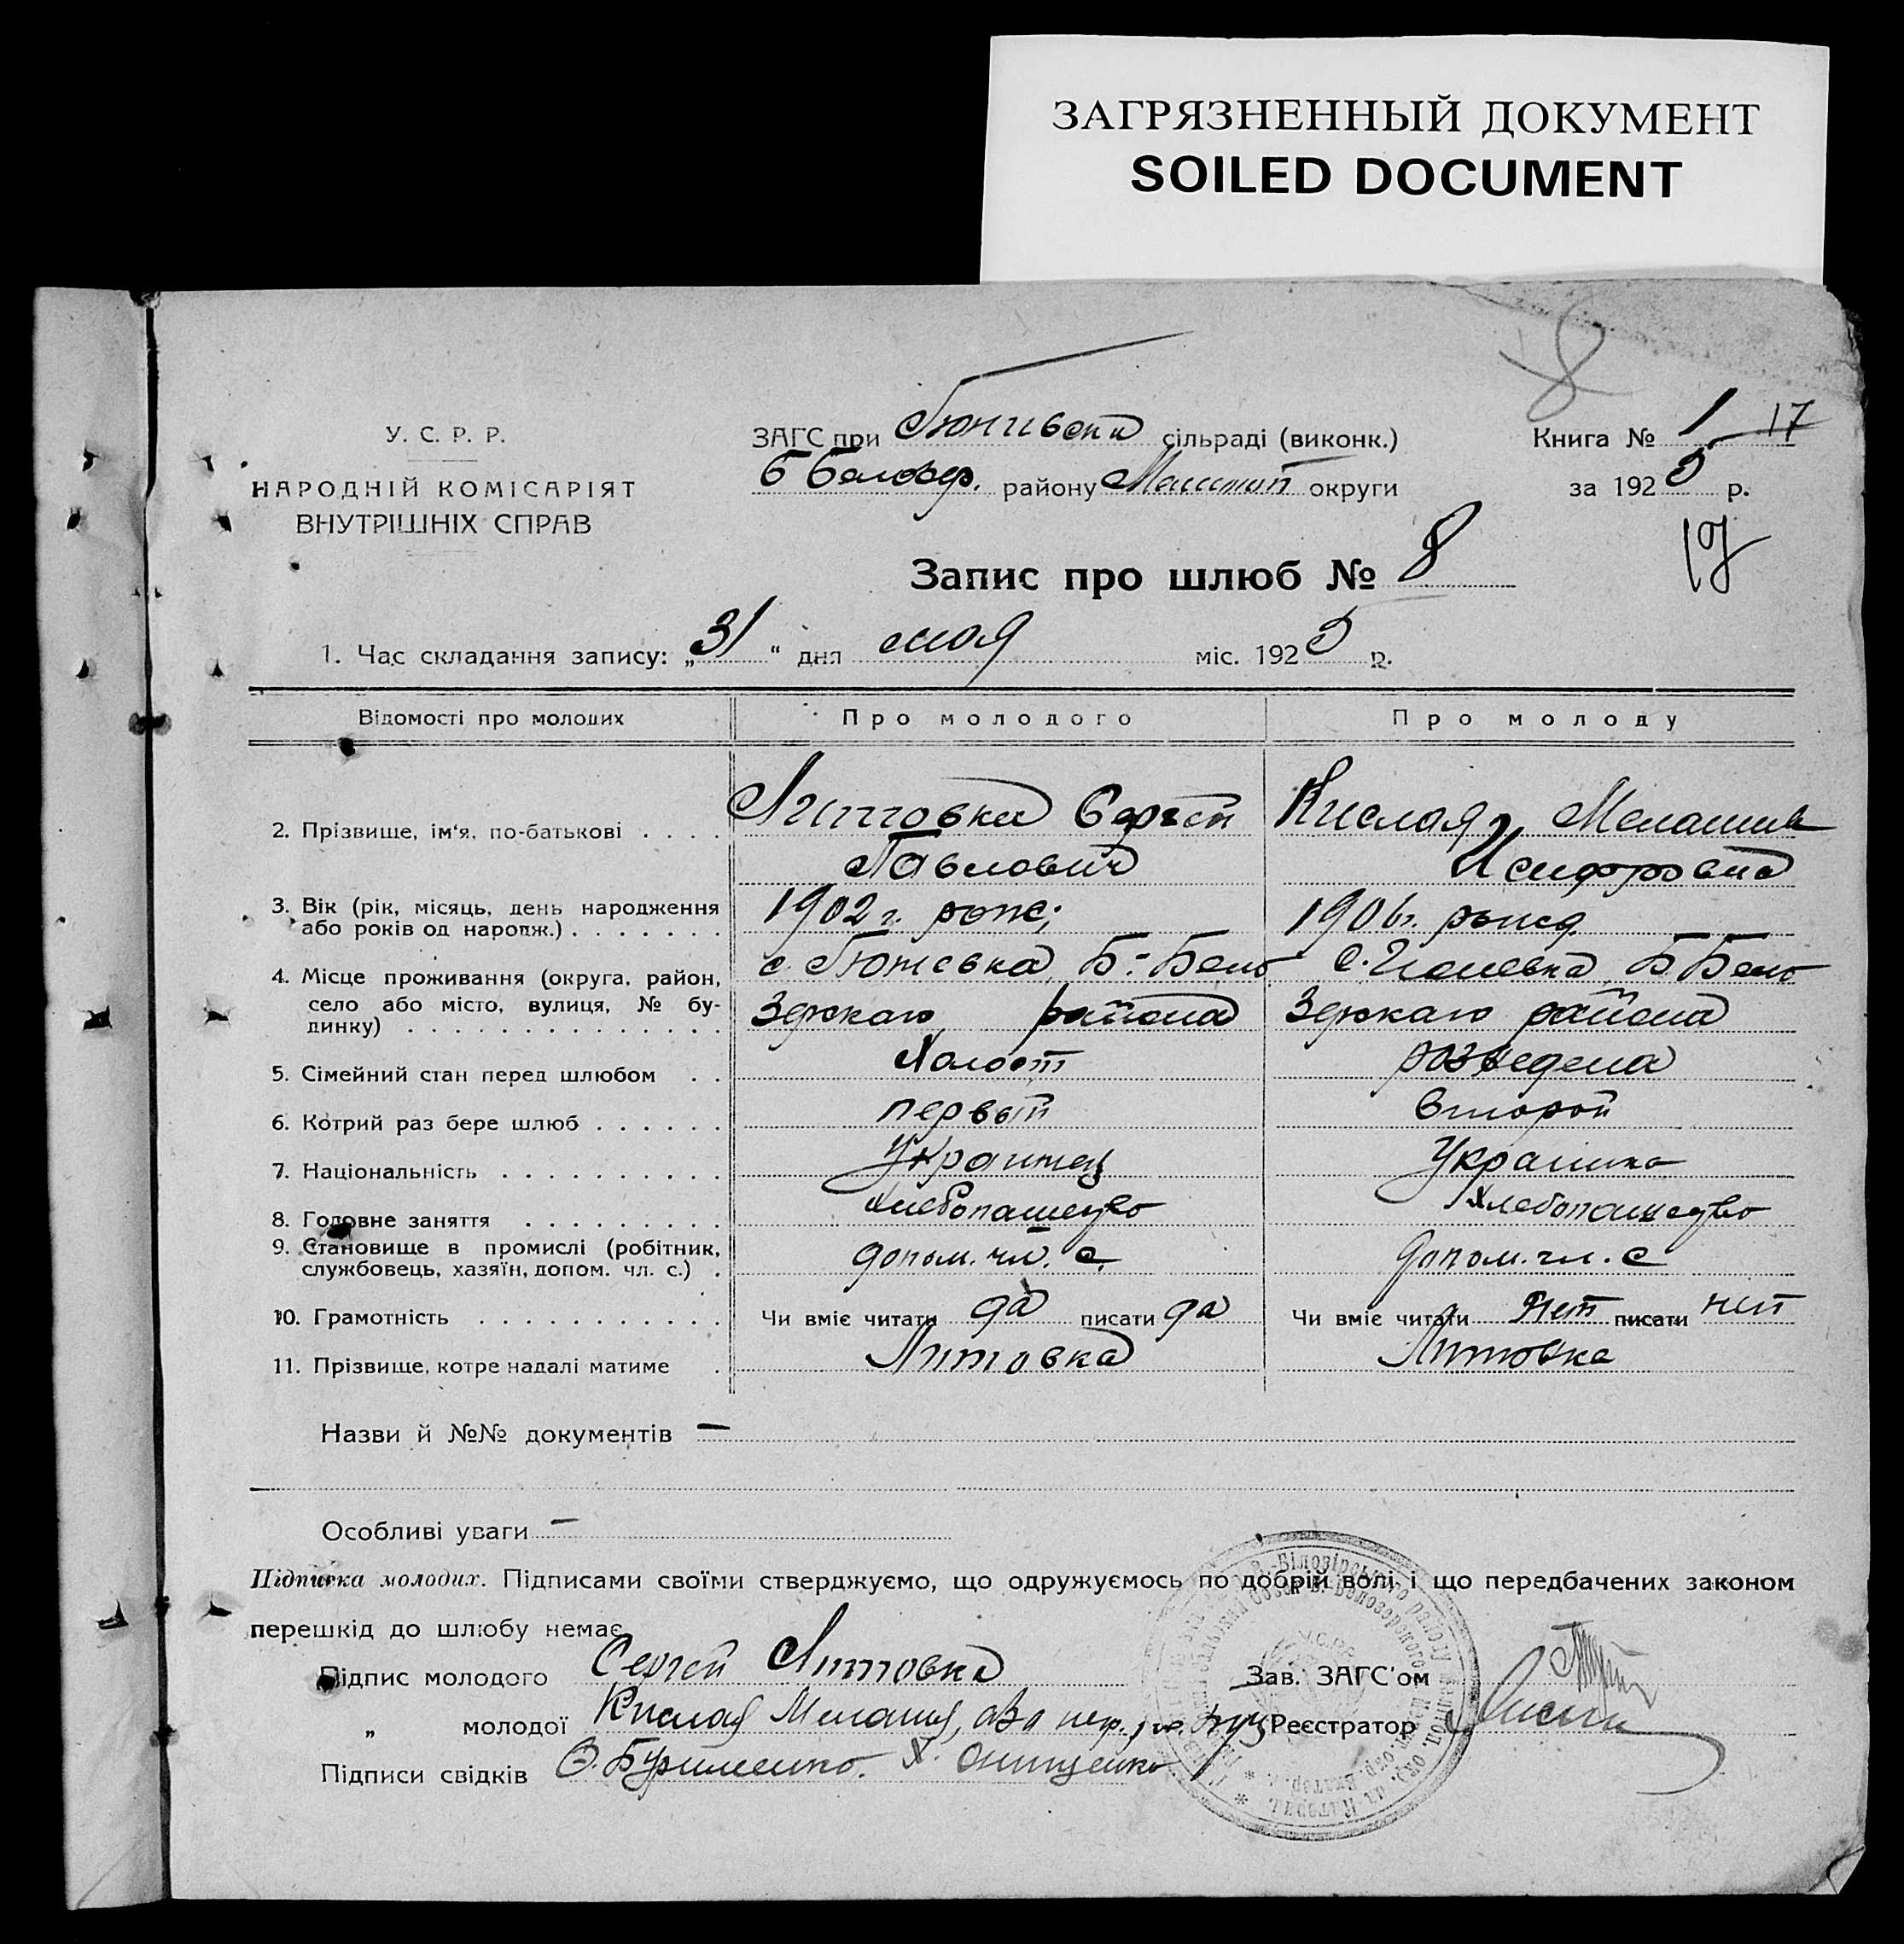 ЗАГРЯЗНЕННЫЙ ДОКУМЕНТ
SOILED DOCUMENT
8
У. С. Р. Р.
НАРОДНІЙ КОМІСАРІЯТ
ВНУТРІШНІХ СПРАВ
ЗАГС при сільраді (виконк.)
Б Белозер. району Мелитоп округи
Книга № 1 17
за 1925 р.
Запис про шлюб № 8
19
1. Час складання запису: „31“ дня мая міс. 1925 р.
Відомості про молодих Про молодого Про молоду
2. Прізвище, ім'я, по-батькові . . . . Литовка Сергей Кислая Мелания
Павлович
3. Вік (рік, місяць, день народження 1902 г. рож; 1906 г. рожд.
або років од народж.) . . . . . . .
4. Місце проживання (округа, район, с. Б-Бело с. Б Бело
село або місто, вулиця, № бу- зерскаго района зерскаго района
динку) . . . . . . . . . . . . . .
5. Сімейний стан перед шлюбом . . Холост розведена
6. Котрий раз бере шлюб . . . . . . первый второй
7. Національність . . . . . . . . . . Украинец Украинка
8. Головне заняття . . . . . . . . . Хлебопашество Хлебопашество
9. Становище в промислі (робітник, допом. чл. с. допом. чл. с
службовець, хазяїн, допом. чл. с.) .
10. Грамотність . . . . . . . . . . . Чи вміє читати да писати да Чи вміє читати Нет писати нет
11. Прізвище, котре надалі матиме . Литовка Литовка
Назви й №№ документів —
Особливі уваги —
Підписка молодих. Підписами своїми стверджуємо, що одружуємось по добрій волі і що передбачених законом
перешкід до шлюбу немає.
Підпис молодого Сергей Литовка Зав. ЗАГС'ом
„ молодої Кислая Мелания, Реєстратор
Підписи свідків Онищенко